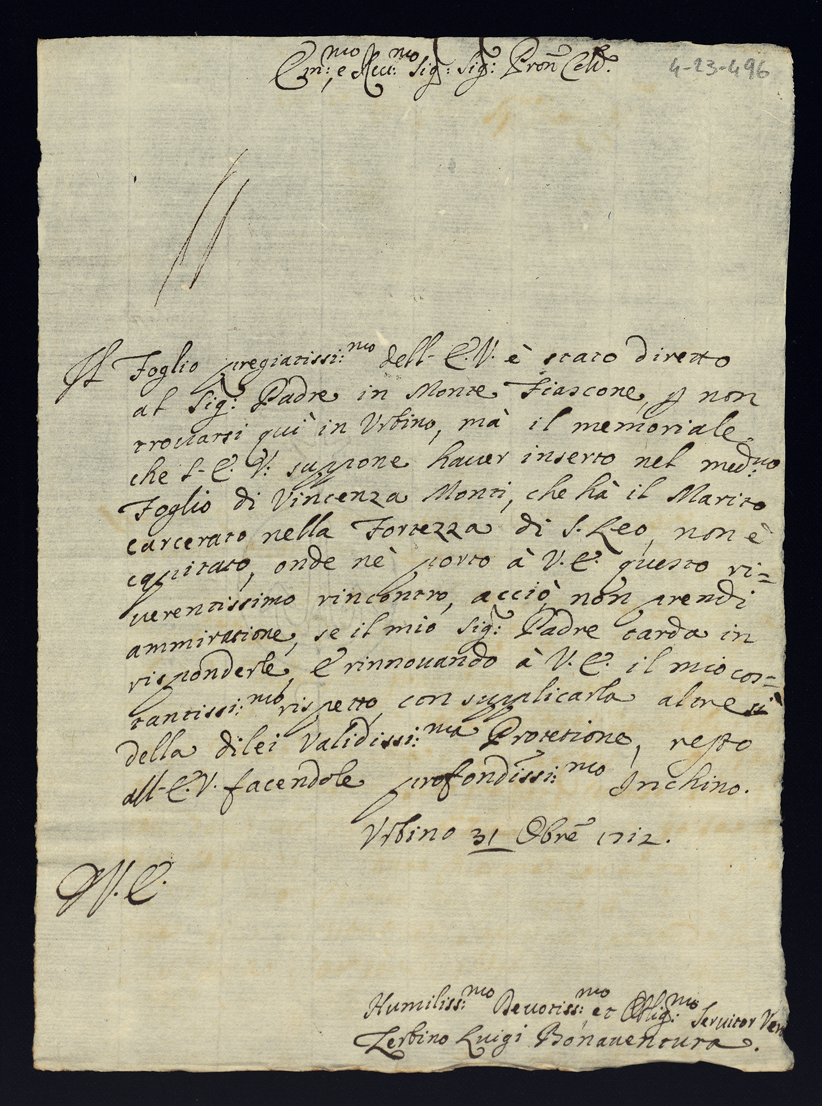 Em:mo, e Rev:mo Sig: Sig: Pron Col:
4-23-496
Il Foglio pregiatissi:mo dell-E.V. è stato diretto
al Sig: Padre in Monte Fiascone, p non
trovarsi quì in Urbino, mà il memoriale
che S-E:V: suppone hauer inserto nel med:mo
Foglio di Vincenza Monti, che hà il Marito
carcerato nella Fortezza di S. Leo, non è
capitato, onde nè porto à V.E. questo ri=
uerentissimo rincontro, acciò non prendi
ammiratione, se il mio Sig: Padre tarda in
risponderle, E rinnouando à V.E. il mio cos=
tantissi:mo rispetto, con supplicarla altresi
della dilei Validissi:ma Protetione, resto
all-E.V. facendole profondissi:mo Inchino.
Urbino 31 Obre 1712.
V.E.
Humiliss:mo Deuotiss:mo et Oblig:mo Seruitor Ver
Zerbino Luigi Bonauentura.